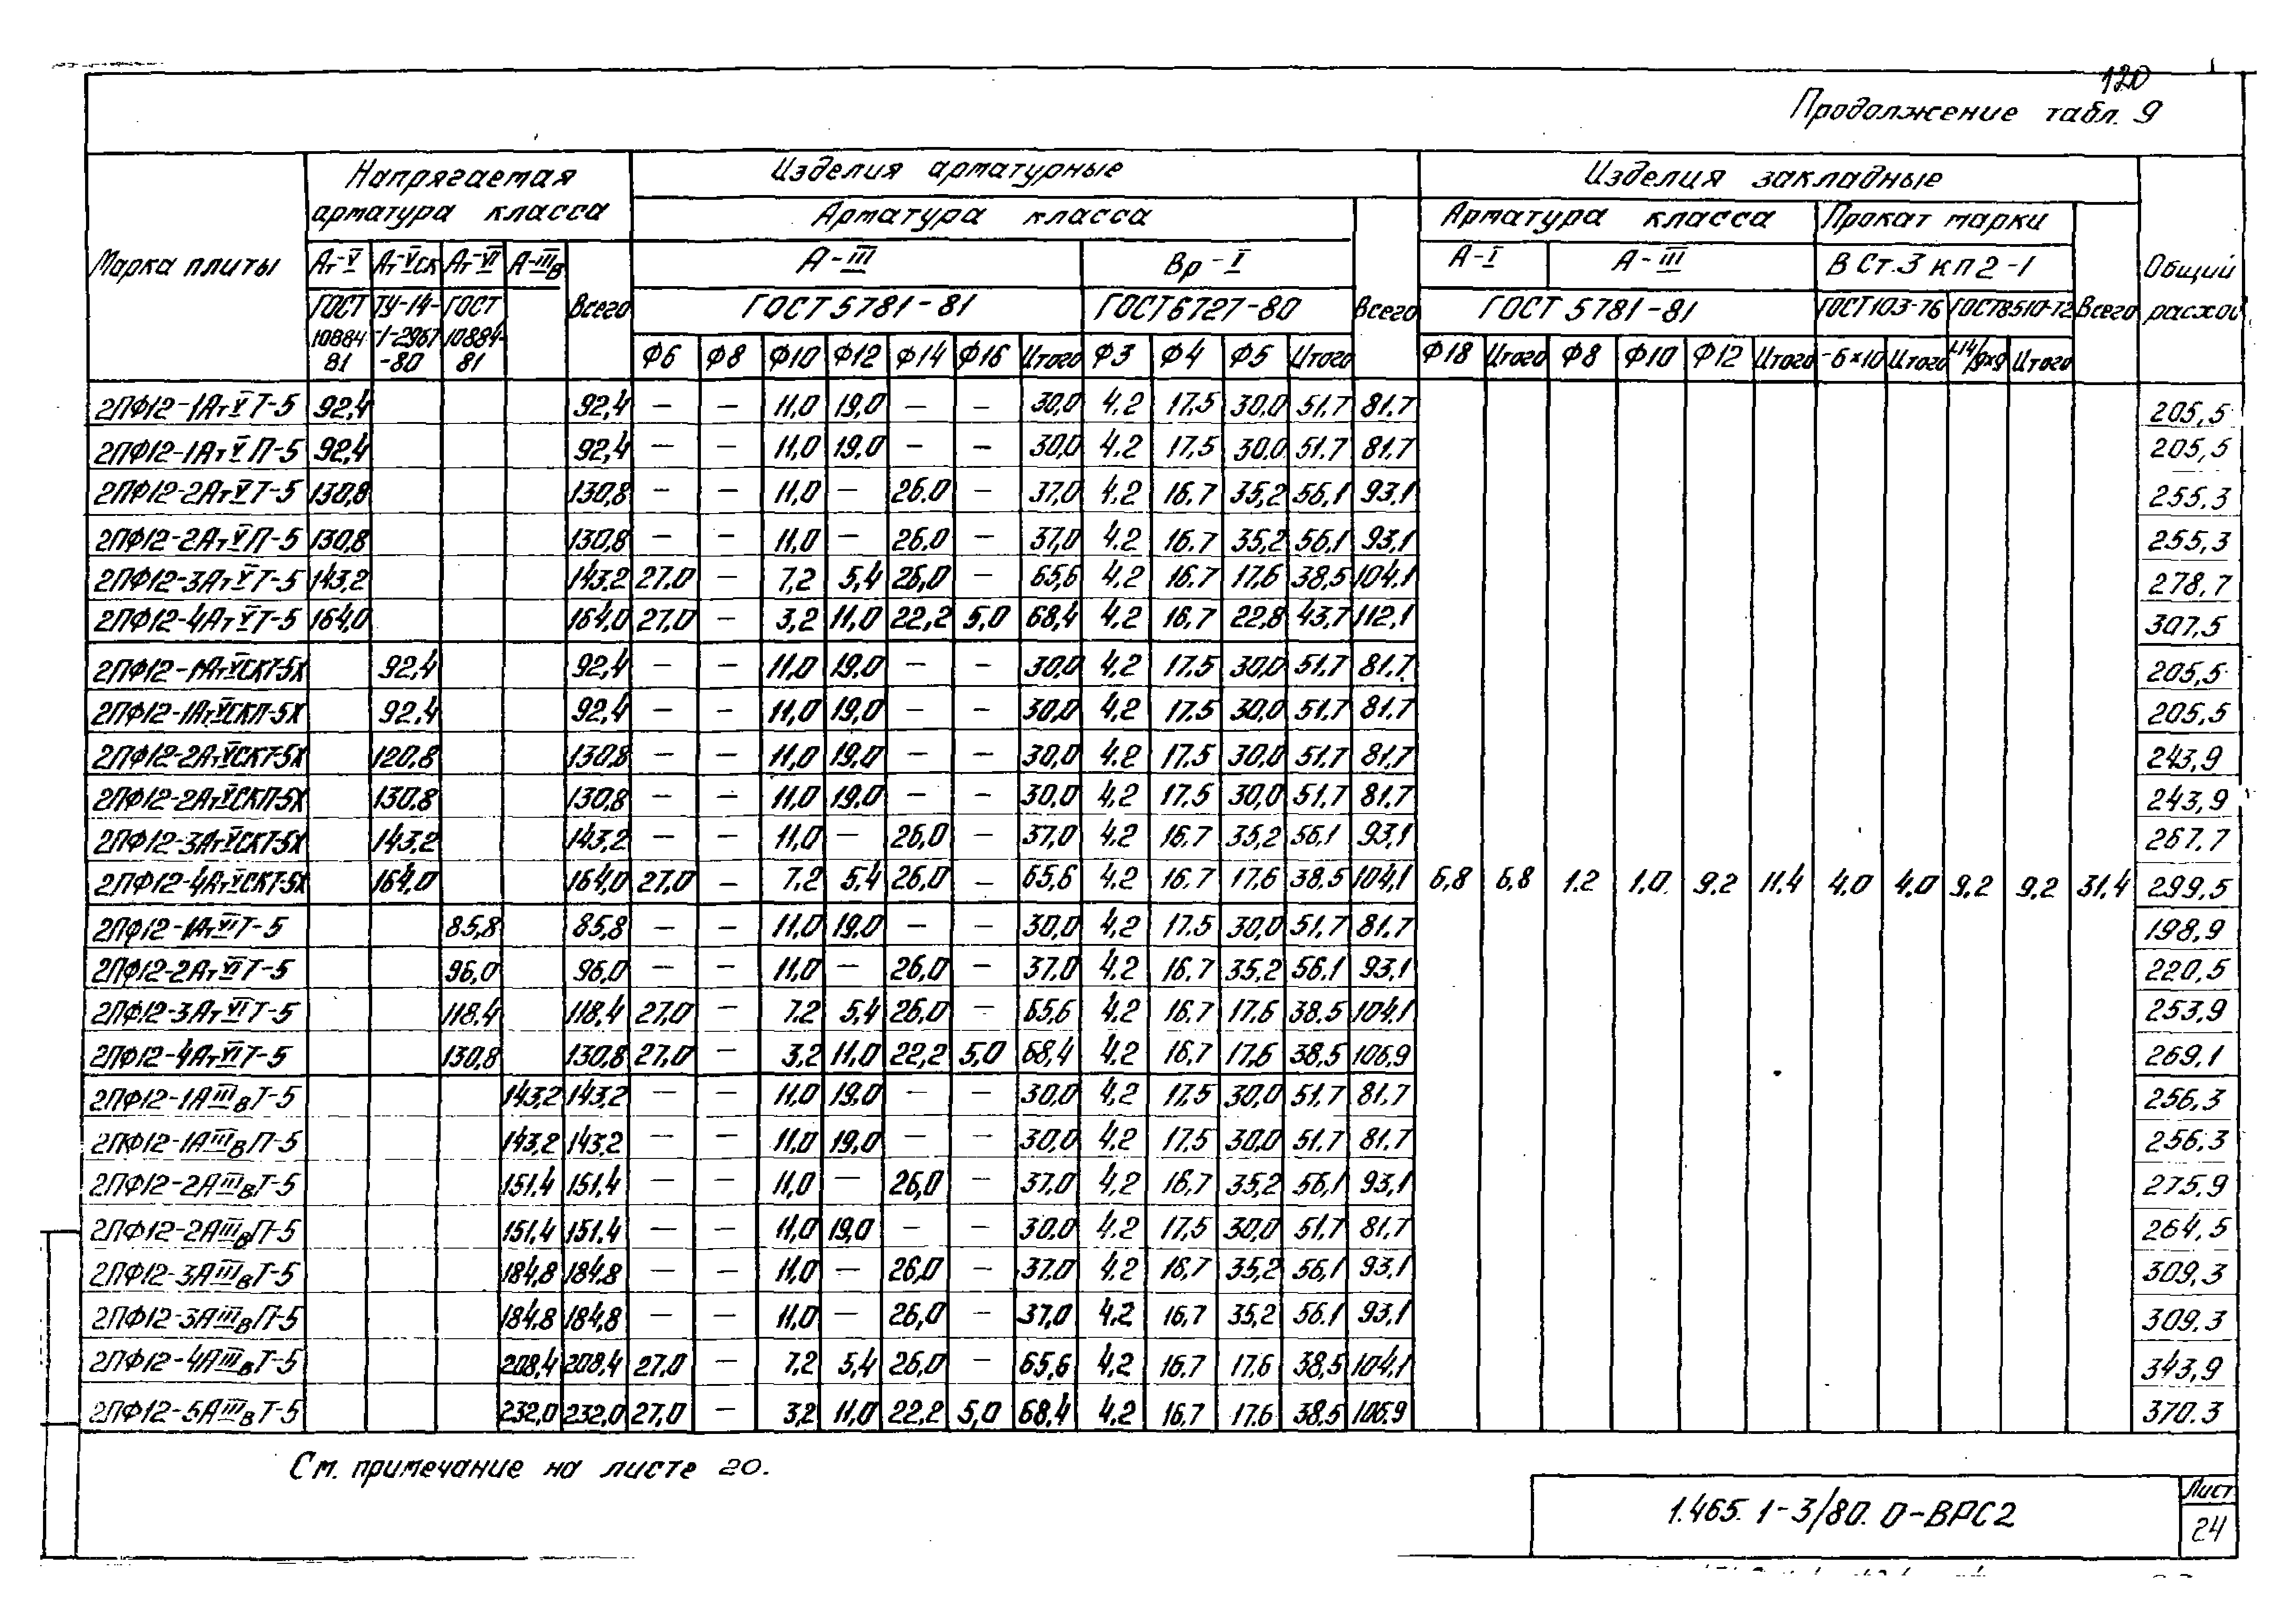 120
Продолжение табл. 9
Марка плиты
Напрягаемая арматура класса
Изделия арматурные
Изделия закладные
Общий расход
Арматура класса
Всего
Арматура класса
Прокат марки
Всего
Ат-V Ат-Vск Ат-VI А-IIIв Всего
А-III Вр-I
А-I А-III
В Ст.3 кп 2-1
ГОСТ 10884-81 ТУ-14-1-2967-80 ГОСТ 10884-81
ГОСТ 5781-81 ГОСТ 6727-80
ГОСТ 5781-81 ГОСТ 103-76 ГОСТ 8510-72
Ф6 Ф8 Ф10 Ф12 Ф14 Ф16 Итого Ф3 Ф4 Ф5 Итого
Ф18 Итого Ф8 Ф10 Ф12 Итого -6×10 Итого Итого
2ПФ12-1АтVТ-5 92,4 92,4 — — 11,0 19,0 — — 30,0 4.2 17.5 30,0 51.7 81.7 205,5
2ПФ12-1АтVП-5 92,4 92,4 — — 11,0 19,0 — — 30,0 4.2 17.5 30,0 51.7 81.7 205,5
2ПФ12-2АтVТ-5 130,8 130,8 — — 11,0 — 26.0 — 37,0 4.2 16.7 35,2 56,1 93,1 255.3
2ПФ12-2АтVП-5 130,8 130,8 — — 11,0 — 26.0 — 37,0 4.2 16.7 35,2 56,1 93,1 255,3
2ПФ12-3АтVТ-5 143,2 143,2 27.0 — 7,2 5,4 26,0 — 65,6 4.2 16.7 17,6 38,5 104.1 278,7
2ПФ12-4АтVТ-5 164,0 164,0 27,0 — 3,2 11,0 22,2 5,0 68,4 4.2 16,7 22,8 43,7 112,1 307,5
2ПФ12-1АтVСКТ-5Х 92,4 92,4 — — 11,0 19,0 — — 30,0 4.2 17.5 30,0 51.7 81.7 205,5
2ПФ12-1АтVСКП-5Х 92,4 92,4 — — 11,0 19,0 — — 30,0 4.2 17.5 30,0 51.7 81.7 205,5
2ПФ12-2АтVСКТ-5Х 120,8 130,8 — — 11,0 19,0 — — 30,0 4.2 17.5 30,0 51.7 81.7 243,9
2ПФ12-2АтVСКП-5Х 130,8 130,8 — — 11,0 19,0 — — 30,0 4.2 17.5 30,0 51.7 81.7 243,9
2ПФ12-3АтVСКТ-5Х 143,2 143,2 — — 11,0 — 26,0 — 37,0 4.2 16.7 35,2 56,1 93,1 267.7
2ПФ12-4АтVСКТ-5Х 164,0 164,0 27,0 — 7.2 5,4 26,0 — 65,6 4.2 16.7 17,6 38,5 104,1 6,8 6,8 1.2 1,0 9.2 11.4 4.0 4.0 9.2 9.2 31.4 299,5
2ПФ12-1АтVIТ-5 85,8 85,8 — — 11,0 19,0 — — 30,0 4.2 17.5 30,0 51.7 81.7 198,9
2ПФ12-2АтVIТ-5 96,0 96,0 — — 11,0 — 26,0 — 37.0 4.2 16.7 35.2 56.1 93,1 220,5
2ПФ12-3АтVIТ-5 118,4 118,4 27,0 — 7.2 5,4 26,0 — 65,6 4.2 16,7 17.6 38.5 104,1 253,9
2ПФ12-4АтVIТ-5 130,8 130,8 27,0 — 3,2 11,0 22,2 5,0 68,4 4.2 16,7 17,6 38,5 106,9 269,1
2ПФ12-1АIIIвТ-5 143,2 143,2 — — 11,0 19,0 — — 30,0 4.2 17.5 30,0 51.7 81.7 256,3
2ПФ12-1АIIIвП-5 143,2 143,2 — — 11,0 19,0 — — 30,0 4.2 17.5 30,0 51.7 81.7 256,3
2ПФ12-2АIIIвТ-5 151.4 151.4 — — 11,0 — 26,0 — 37.0 4.2 16,7 35,2 56,1 93,1 275,9
2ПФ12-2АIIIвП-5 151.4 151.4 — — 11,0 19,0 — — 30,0 4.2 17,5 30,0 51,7 81.7 264,5
2ПФ12-3АIIIвТ-5 184,8 184,8 — — 11,0 — 26,0 — 37.0 4.2 16,7 35,2 56,1 93,1 309,3
2ПФ12-3АIIIвП-5 184,8 184,8 — — 11,0 — 26,0 — 37,0 4.2 16,7 35,2 56.1 93,1 309.3
2ПФ12-4АIIIвТ-5 208,4 208,4 27.0 — 7.2 5,4 26,0 — 65,6 4,2 16.7 17.6 38,5 104,1 343,9
2ПФ12-5АIIIвТ-5 232,0 232,0 27,0 — 3,2 11,0 22,2 5,0 68,4 4.2 16,7 17.6 38.5 106.9 370.3
См. примечание на листе 20.
1.465.1-3/80.0-ВРС2
Лист
24